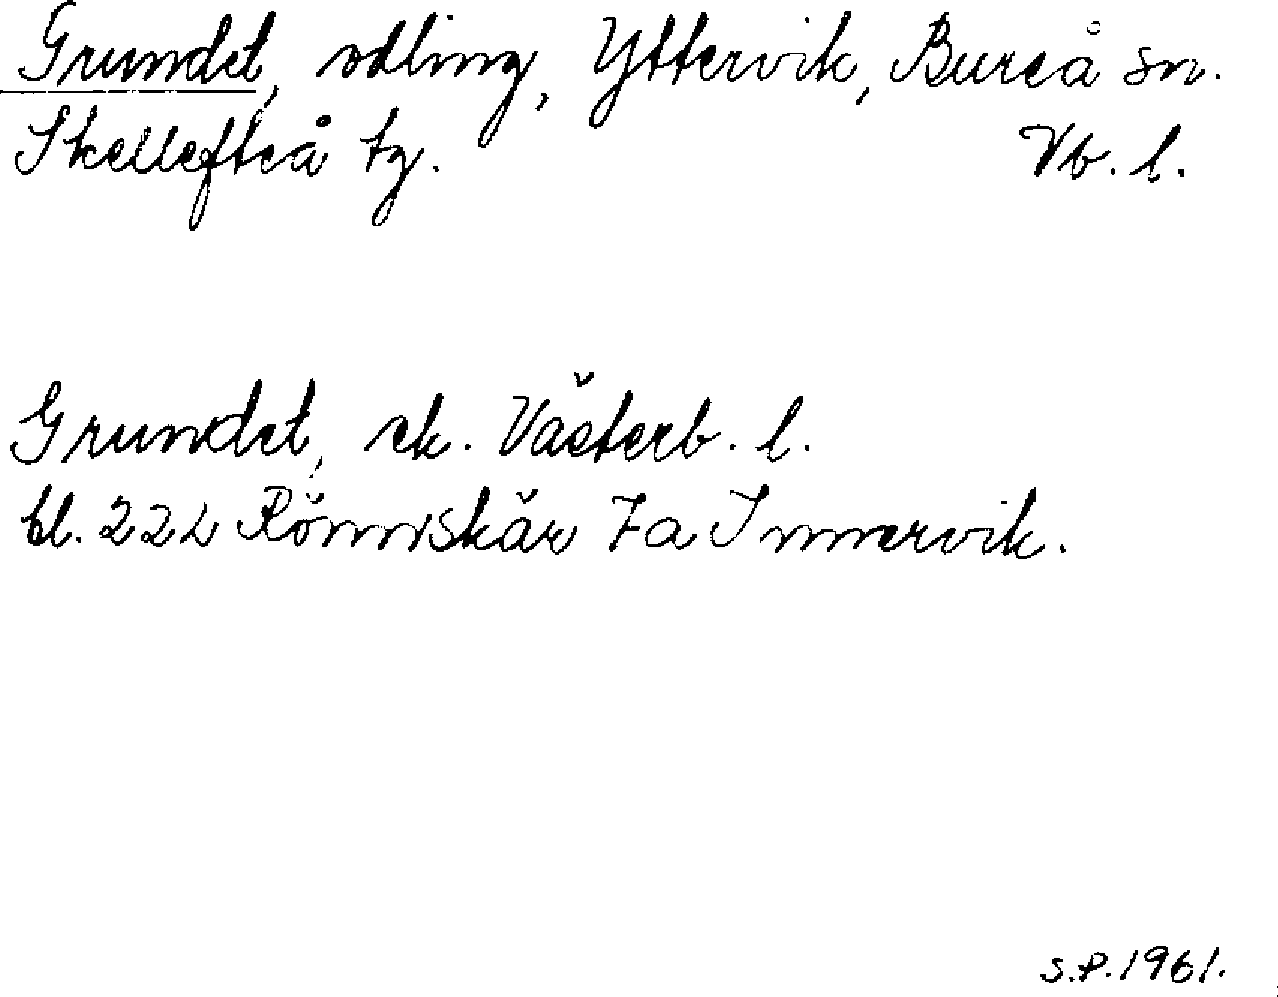 Grundet, odling, Yttervik, Bureå sn.
Skellefteå tg. Vb. l.
Grundet, ek. Västerb. l.
bl. 22L Rönnskär 7a Innervik.
S.P. 1961.